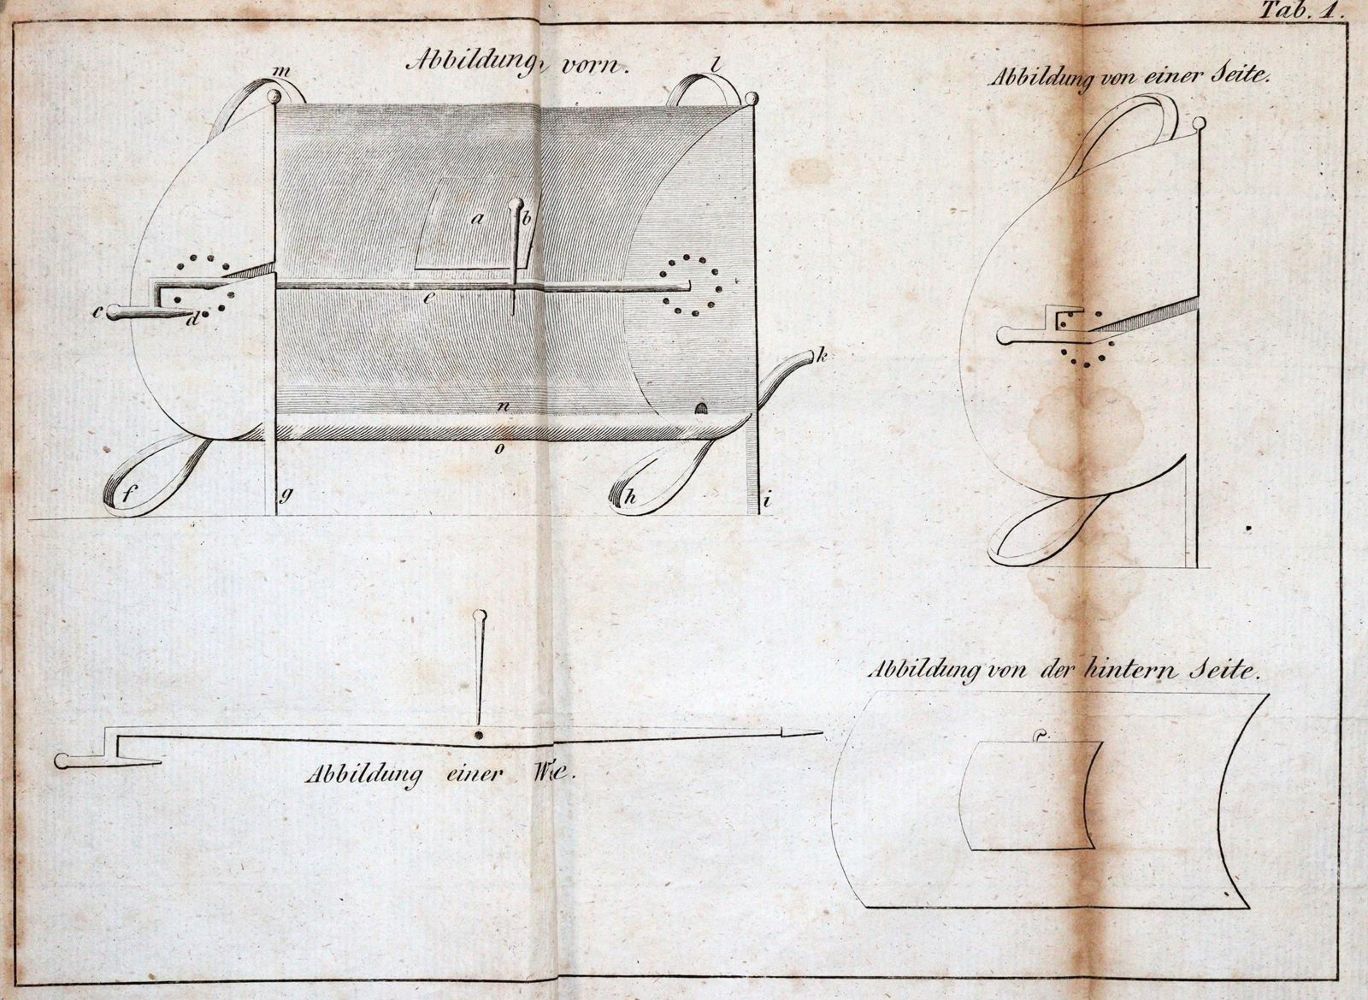 Tab. 1.
Abbildung vorn.
m
l
a
b
c
d
e
k
n
o
f
g
h
i
Abbildung von einer Seite.
Abbildung einer
Abbildung von der hintern Seite.